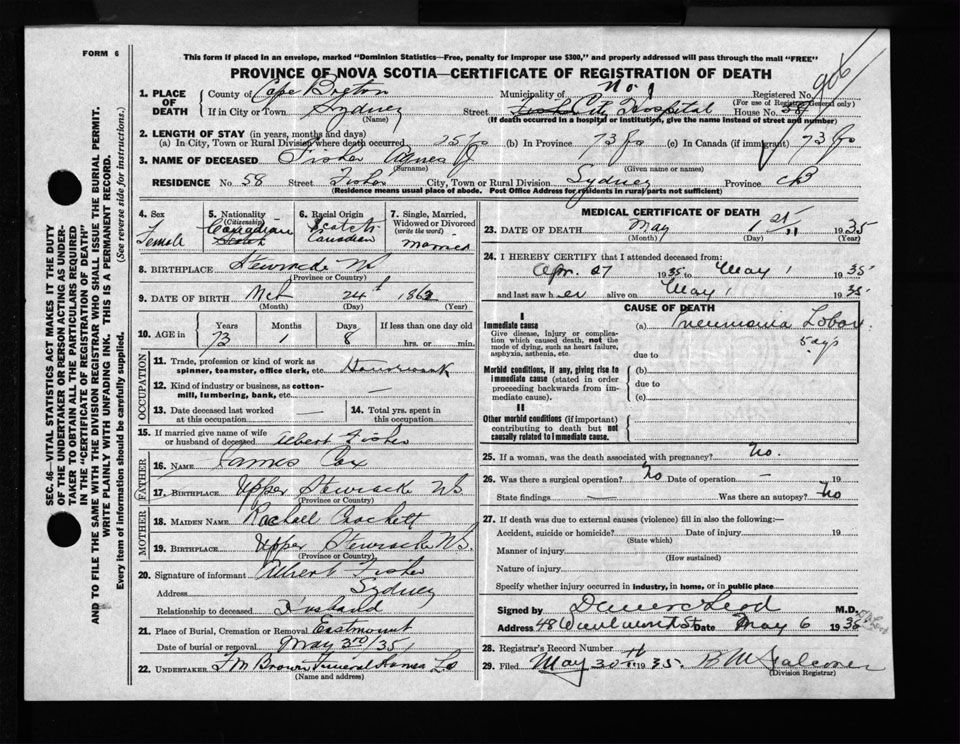 FORM 6
This form if placed in an envelope, marked "Dominion Statistics—Free, penalty for improper use $300," and properly addressed will pass through the mail "FREE"
PROVINCE OF NOVA SCOTIA—CERTIFICATE OF REGISTRATION OF DEATH
906
1. PLACE OF DEATH
County of Cape Breton Municipality of No. 1 Registered No.
(For use of Registrar General only)
If in City or Town Sydney Street City Hospital House No.
(Name) (If death occurred in a hospital or institution, give the name instead of street and number)
2. LENGTH OF STAY (in years, months and days)
(a) In City, Town or Rural Division where death occurred (b) In Province 73 (c) In Canada (if immigrant) 73
3. NAME OF DECEASED Fisher Agnes J
(Surname) (Given name or names)
RESIDENCE No. 58 Street Fisher City, Town or Rural Division Sydney Province CB
(Residence means usual place of abode. Post Office Address for residents in rural parts not sufficient)
4. Sex Female
5. Nationality (Citizenship) Canadian Scotch
6. Racial Origin Scotch Canadian
7. Single, Married, Widowed or Divorced (write the word) Married
8. BIRTHPLACE Stewiacke NS
(Province or Country)
9. DATE OF BIRTH Mch 24th 1862
(Month) (Day) (Year)
10. AGE in Years Months Days If less than one day old
73 1 8 hrs. or min.
OCCUPATION
11. Trade, profession or kind of work as spinner, teamster, office clerk, etc. Housework
12. Kind of industry or business, as cotton-mill, lumbering, bank, etc. —
13. Date deceased last worked at this occupation — 14. Total yrs. spent in this occupation
15. If married give name of wife or husband of deceased Albert Fisher
FATHER
16. NAME James Cox
17. BIRTHPLACE Upper Stewiacke NS
(Province or Country)
MOTHER
18. MAIDEN NAME Rachael Crockett
19. BIRTHPLACE Upper Stewiacke NS.
(Province or Country)
20. Signature of informant Albert Fisher
Address Sydney
Relationship to deceased Husband
21. Place of Burial, Cremation or Removal Eastmount
Date of burial or removal May 3rd/35
22. UNDERTAKER Brown Funeral Home
(Name and address)
MEDICAL CERTIFICATE OF DEATH
23. DATE OF DEATH May 1st 1935
(Month) (Day) (Year)
24. I HEREBY CERTIFY that I attended deceased from:
Apr. 27 1935 to May 1 1935
and last saw her alive on May 1 1935
CAUSE OF DEATH
I
Immediate cause (a) Pneumonia Lobar
Give disease, injury or complication which caused death, not the mode of dying, such as heart failure, asphyxia, asthenia, etc. 5 days
due to
Morbid conditions, if any, giving rise to immediate cause (stated in order proceeding backwards from immediate cause). (b)
due to
(c)
II
Other morbid conditions (if important) contributing to death but not causally related to immediate cause.
25. If a woman, was the death associated with pregnancy? No.
26. Was there a surgical operation? No Date of operation — 19
State findings — Was there an autopsy? No
27. If death was due to external causes (violence) fill in also the following:—
Accident, suicide or homicide? Date of injury 19
(State which)
Manner of injury
(How sustained)
Nature of injury
Specify whether injury occurred in industry, in home, or in public place
Signed by M.D.
Address 48 Date May 6 1935
28. Registrar's Record Number
29. Filed May 30th 1935.
(Division Registrar)
SEC. 46—VITAL STATISTICS ACT MAKES IT THE DUTY
OF THE UNDERTAKER OR PERSON ACTING AS UNDER-
TAKER TO OBTAIN ALL THE PARTICULARS REQUIRED
IN THE "CERTIFICATE OF REGISTRATION OF DEATH"
AND TO FILE THE SAME WITH THE DIVISION REGISTRAR WHO SHALL ISSUE THE BURIAL PERMIT.
WRITE PLAINLY WITH UNFADING INK. THIS IS A PERMANENT RECORD.
Every item of information should be carefully supplied. (See reverse side for instructions.)